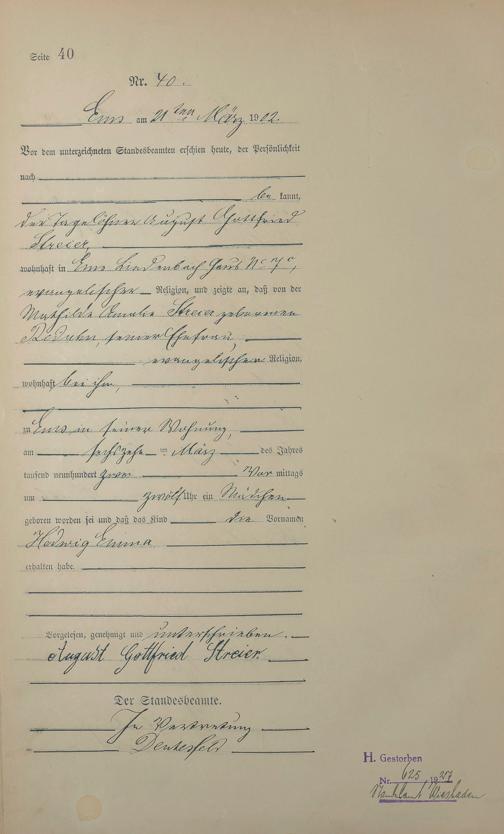 Seite 40
Nr. 40.
Ems am 21ten März 1902.
Vor dem unterzeichneten Standesbeamten erschien heute, der Persönlichkeit
nach
be kannt,
der Tagelöhner August Gottfried
Streier,
wohnhaft in Ems Lindenbach Haus No 7c,
evangelischer Religion, und zeigte an, daß von der
Mathilde Amalie Streier geborenen
seiner Ehefrau,
evangelischer Religion,
wohnhaft bei ihm,
zu Ems in seiner Wohnung,
am sechszehn ten März des Jahres
tausend neunhundert zwei Vor mittags
um zwölf Uhr ein Mädchen
geboren worden sei und daß das Kind die Vornamen
Hedwig Emma
erhalten habe.
Vorgelesen, genehmigt und unterschrieben.
August Gottfried Streier.
Der Standesbeamte.
In Vertretung
H. Gestorben
Nr. 625 1937
Standesamt Wiesbaden